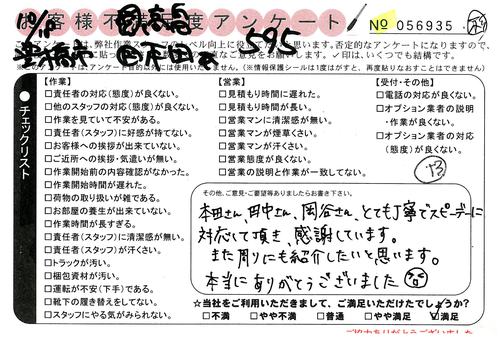 お客様不満足度アンケート
№ 056935
595
お客様アンケートは、弊社作業スタッフのレベル向上に役立てたいと思います。否定的なアンケートになりますので、
ご意見をお願いします。✓印は、いくつでも結構です。
【作業】
□責任者の対応(態度)が良くない。
□他のスタッフの対応(態度)が良くない。
□作業を見ていて不安がある。
□責任者(スタッフ)に好感が持てない。
□お客様への挨拶が出来ていない。
□ご近所への挨拶・気遣いが無い。
□作業開始前の内容確認がなかった。
□作業開始時間が遅れた。
□荷物の取り扱いが雑である。
□お部屋の養生が出来ていない。
□作業時間が長すぎる。
□責任者(スタッフ)に清潔感が無い。
□責任者(スタッフ)が汗くさい。
□トラックが汚い。
□梱包資材が汚い。
□運転が不安(下手)である。
□靴下の履き替えをしてない。
□スタッフにやる気がみられない。
【営業】
□見積もりに遅れた。
□見積もり時間が長い。
□営業マンに清潔感が無い。
□営業マンが煙草くさい。
□営業マンが汗くさい。
□営業態度が良くない。
□営業の説明と作業が一致してない。
【受付・その他】
□電話の対応が良くない。
□オプション業者の説明
・作業が良くない。
□オプション業者の対応
(態度)が良くない。
チェックリスト
その他、ご意見・ご要望等ありましたらお書き下さい。
本田さん、田中さん、岡谷さん、とても丁寧でスピーディに
対応して頂き、感謝しています。
また周りにも紹介したいと思います。
本当にありがとうございました
☆当社をご利用いただきまして、ご満足いただけたでしょうか?
□不満 □やや不満 □普通 □やや満足 ☑満足
ご協力ありがとうございました